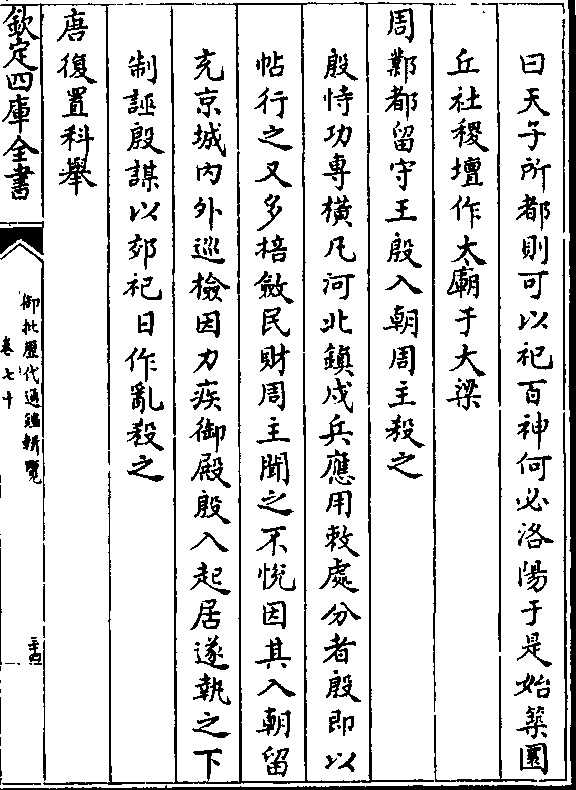 曰天子所都則可以祀百神何必洛陽于是始築圜
丘社稷壇作太廟于大梁
周鄴都留守王殷入朝周主殺之
殷恃功專橫凡河北鎮戍兵應用敕處分者殷即以
帖行之又多掊斂民財周主聞之不悅因其入朝留
充京城內外巡檢因力疾御殿殷入起居遂執之下
制誣殷謀以郊祀日作亂殺之
唐復置科舉
欽定四庫全書
御批歷代通鑑輯覽
卷七十
三十四